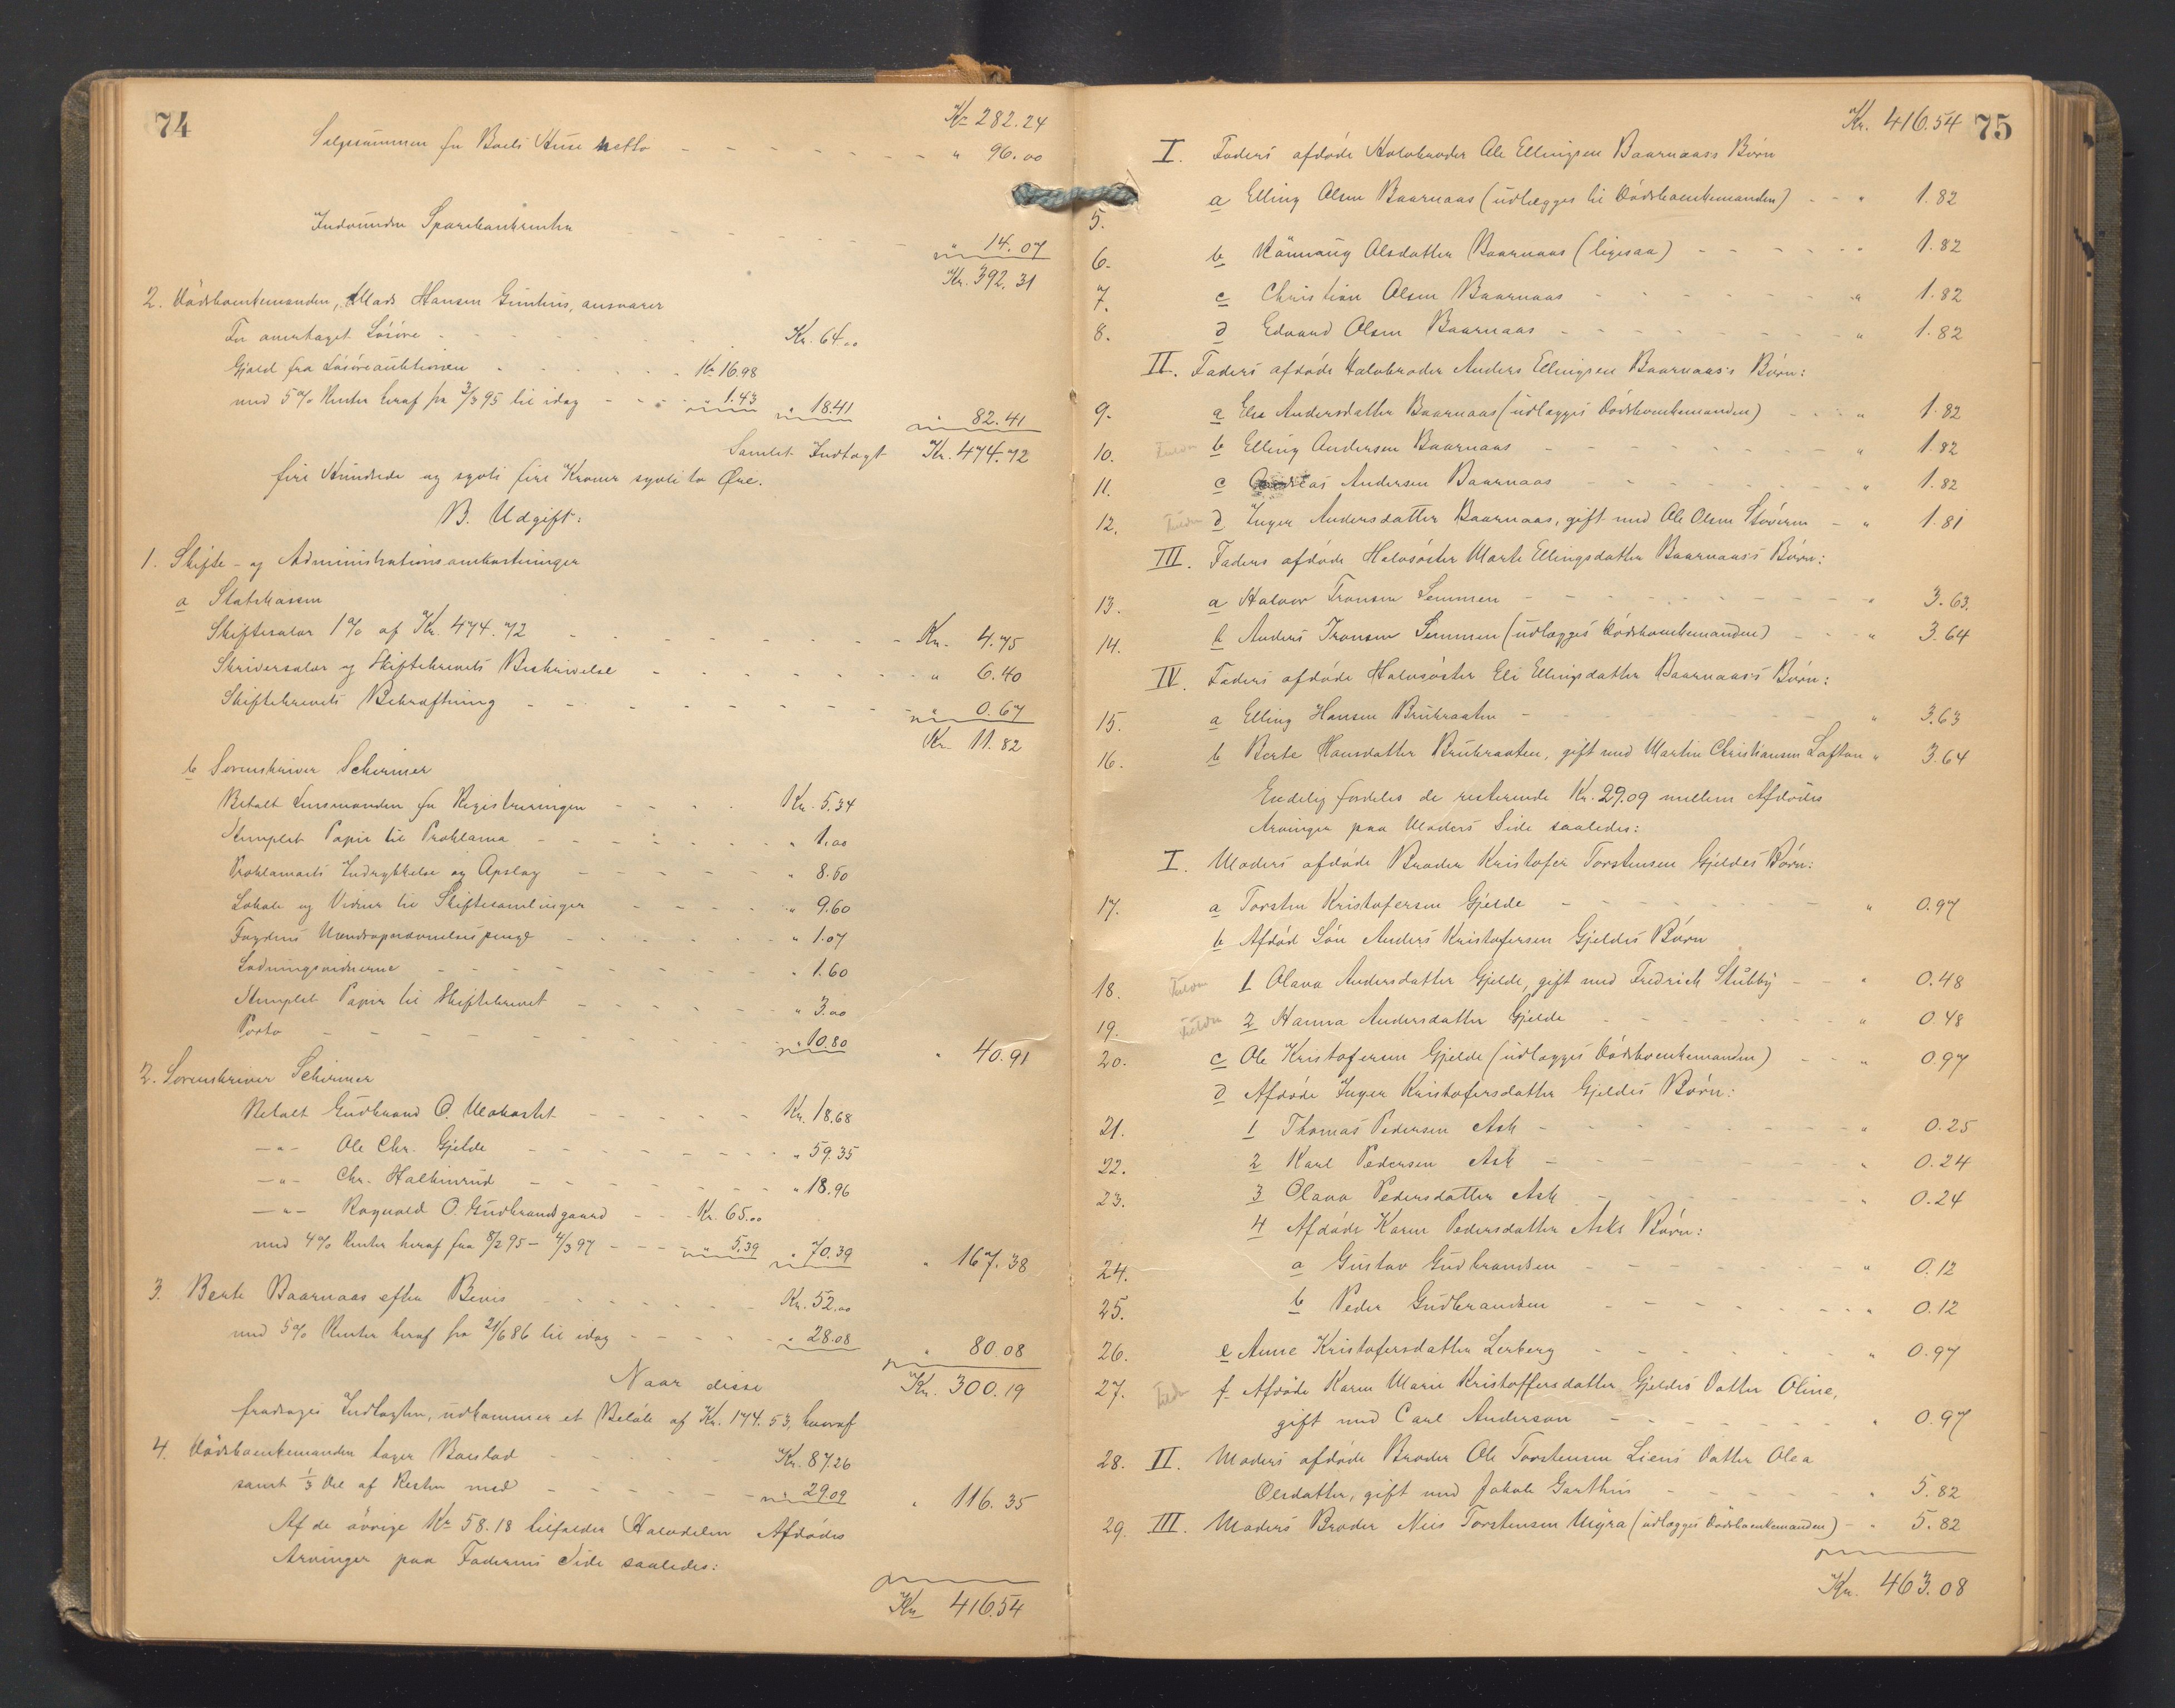 74
Kr 282.24
Salgssummen for Boets Huse netto " 96.00
Indvundne Sparebankrenter " 14.07
Kr. 392.31
2. Dødsboenkemanden, Mads Hansen Gunhus, ansvarer
For overtaget Løsøre Kr. 64.00
Gjæld fra Løsøreauktionen Kr. 16.98
med 5% Renter heraf fra 3/3 95 til idag " 1.43 " 18.41 " 82.41
Samlet Indtægt Kr. 474.72
fire Hundrede og sytti fire Kroner sytti to Øre.
B. Udgift:
1. Skifte- og Administrationsomkostninger
a Statskassen
Skiftesalær 1% af Kr. 474.72 Kr. 4.75
Skriversalær og Skiftebrevets Beskrivelse " 6.40
Skiftebrevets Bekræftning " 0.67
Kr. 11.82
b Sorenskriver Schirmer
Betalt Lensmanden for Registreringen Kr. 5.34
Stemplet Papir til Proklama " 1.00
Proklamaets Indrykkelse og Opslag " 8.50
Lokale og Vidner til Skiftesamlinger " 9.60
Fogdens Mændsopnævnelsespenge " 1.07
Lodningsvidnerne " 1.60
Stemplet Papir til Skiftebrevet " 3.00
Porto " 10.80 " 40.91
2. Sorenskriver Schirmer
Betalt Gudbrand O. Kr. 18.68
—"— Ole Chr. Gjelde " 59.35
—"— Chr. Halkinrud " 18.96
—"— Ragnvald O. Gudbrandsgaard Kr. 65.00
med 4% Renter heraf fra 8/2 95 – 4/3 97 " 5.39 " 70.39 " 167.38
3. Berte Baarnaas efter Bevis Kr. 52.00
med 5% Renter heraf fra 21/6 86 til idag " 28.08 " 80.08
Naar disse Kr. 300.19
fradrages Indtægten, udkommer et Beløb af Kr. 174.53, hvoraf
4. Dødsboenkemanden tager Boeslod Kr. 87.26
samt 1/3 Del af Resten med " 29.09 " 116.35
Af de øvrige Kr. 58.18 tilfalder Halvdelen Afdødes
Arvinger paa Faderens Side saaledes:
Kr. 416.54
Kr. 416.54 75
I. Faders afdøde Halvbroder Ole Ellingsen Baarnaas's Børn
5. a Elling Olsen Baarnaas (udlægges til Dødsboenkemanden) " 1.82
6. b Rønnaug Olsdatter Baarnaas (ligesaa) " 1.82
7. c Christian Olsen Baarnaas " 1.82
8. d Edvard Olsen Baarnaas " 1.82
II. Faders afdøde Halvbroder Anders Ellingsen Baarnaas's Børn:
9. a Else Andersdatter Baarnaas (udlægges Dødsboenkemanden) " 1.82
10. b Elling Andersen Baarnaas " 1.82
11. c Andreas Andersen Baarnaas " 1.82
12. d Inger Andersdatter Baarnaas, gift med Ole Olsen Støveren " 1.81
III. Faders afdøde Halvsøster Marte Ellingsdatter Baarnaas's Børn:
13. a Halvor Tronsen Semmen " 3.63.
14. b Anders Tronsen Semmen (udlægges Dødsboenkemanden) " 3.64
IV. Faders afdøde Halvsøster Eli Ellingsdatter Baarnaas's Børn:
15. a Elling Hansen Brukraaten " 3.63
16. b Berte Hansdatter Brukraaten, gift med Martin Christiansen Loftan " 3.64
Endelig fordeles de resterende Kr. 29.09 mellem Afdødes
Arvinger paa Moders Side saaledes:
I. Moders afdøde Broder Kristofer Torstensen Gjeldes Børn:
17. a Torsten Kristofersen Gjelde " 0.97
b Afdød Søn Anders Kristofersen Gjeldes Børn
18. 1 Olava Andersdatter Gjelde, gift med Fredrick Stubby " 0.48
19. 2 Hanna Andersdatter Gjelde " 0.48
20. c Ole Kristofersen Gjelde (udlægges Dødsboenkemanden) " 0.97
d Afdøde Inger Kristofersdatter Gjeldes Børn:
21. 1 Thomas Pedersen Ask " 0.25
22. 2 Karl Pedersen Ask " 0.24
23. 3 Olava Pedersdatter Ask " 0.24
4 Afdøde Karen Pedersdatter Asks Børn:
24. a Gustav Gudbrandsen " 0.12
25. b Peder Gudbrandsen " 0.12
26. e Anne Kristofersdatter Lerberg " 0.97
27. f Afdøde Karen Marie Kristoffersdatter Gjeldes Datter Oline,
gift med Carl Anderson " 0.97
28. II. Moders afdøde Broder Ole Torstensen Liens Datter Olea
Olsdatter, gift med Jakob Garthus " 5.82
29. III. Moders Broder Nils Torstensen Myra (udlægges Dødsboenkemanden) " 5.82
Kr. 463.08